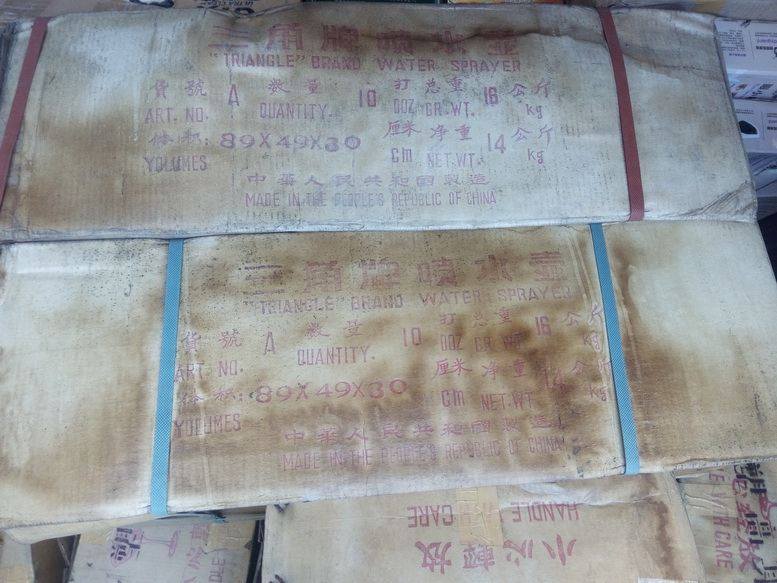 三角牌噴水壺
"TRIANGLE" BRAND WATER SPRAYER
貨號 A 数量 10 打 总重 16 公斤
ART. NO. QUANTITY. DOZ GR.WT. kg
体积: 89X49X30 厘米 净重 14 公斤
VOLUMES cm NET.WT. kg
中華人民共和國製造
MADE IN THE PEOPLE'S REPUBLIC OF CHINA
三角牌噴水壺
"TRIANGLE" BRAND WATER SPRAYER
貨號 A 数量 10 打 总重 16 公斤
ART. NO. QUANTITY. DOZ GR.WT. kg
体积: 89X49X30 厘米 净重 14 公斤
VOLUMES cm NET.WT. kg
中華人民共和國製造
MADE IN THE PEOPLE'S REPUBLIC OF CHINA
HANDLE
CARE
小心輕放
CARE